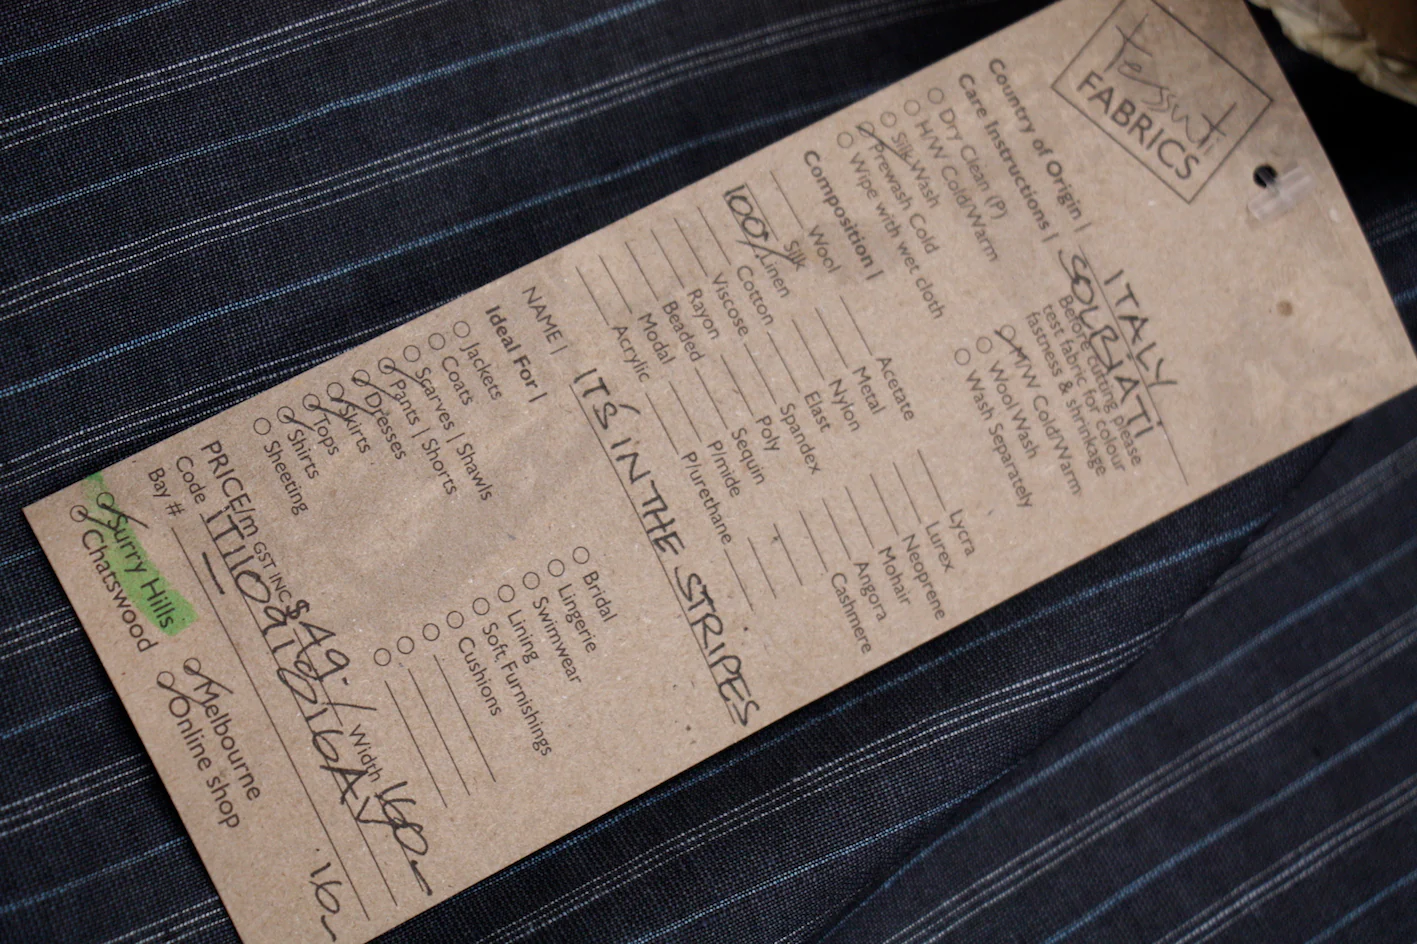 Tessuti
FABRICS
Country of Origin | ITALY
SOLBIATI
Care Instructions | Before cutting please
test fabric for colour
fastness & shrinkage
Dry Clean (P)
H/W Cold/Warm
Silk Wash
Prewash Cold
Wipe with wet cloth
M/W Cold/Warm
Wool Wash
Wash Separately
Composition |
Wool
Silk
100% Linen
Cotton
Viscose
Rayon
Beaded
Modal
Acrylic
Acetate
Metal
Nylon
Elast
Spandex
Poly
Sequin
P/mide
P/urethane
Lycra
Lurex
Neoprene
Mohair
Angora
Cashmere
NAME | IT'S IN THE STRIPES
Ideal For |
Jackets
Coats
Scarves | Shawls
Pants | Shorts
Dresses
Skirts
Tops
Shirts
Sheeting
Bridal
Lingerie
Swimwear
Lining
Soft Furnishings
Cushions
PRICE/m GST INC $49.- / Width 160-
Code
Bay #
16-
Surry Hills
Chatswood
Melbourne
Online shop